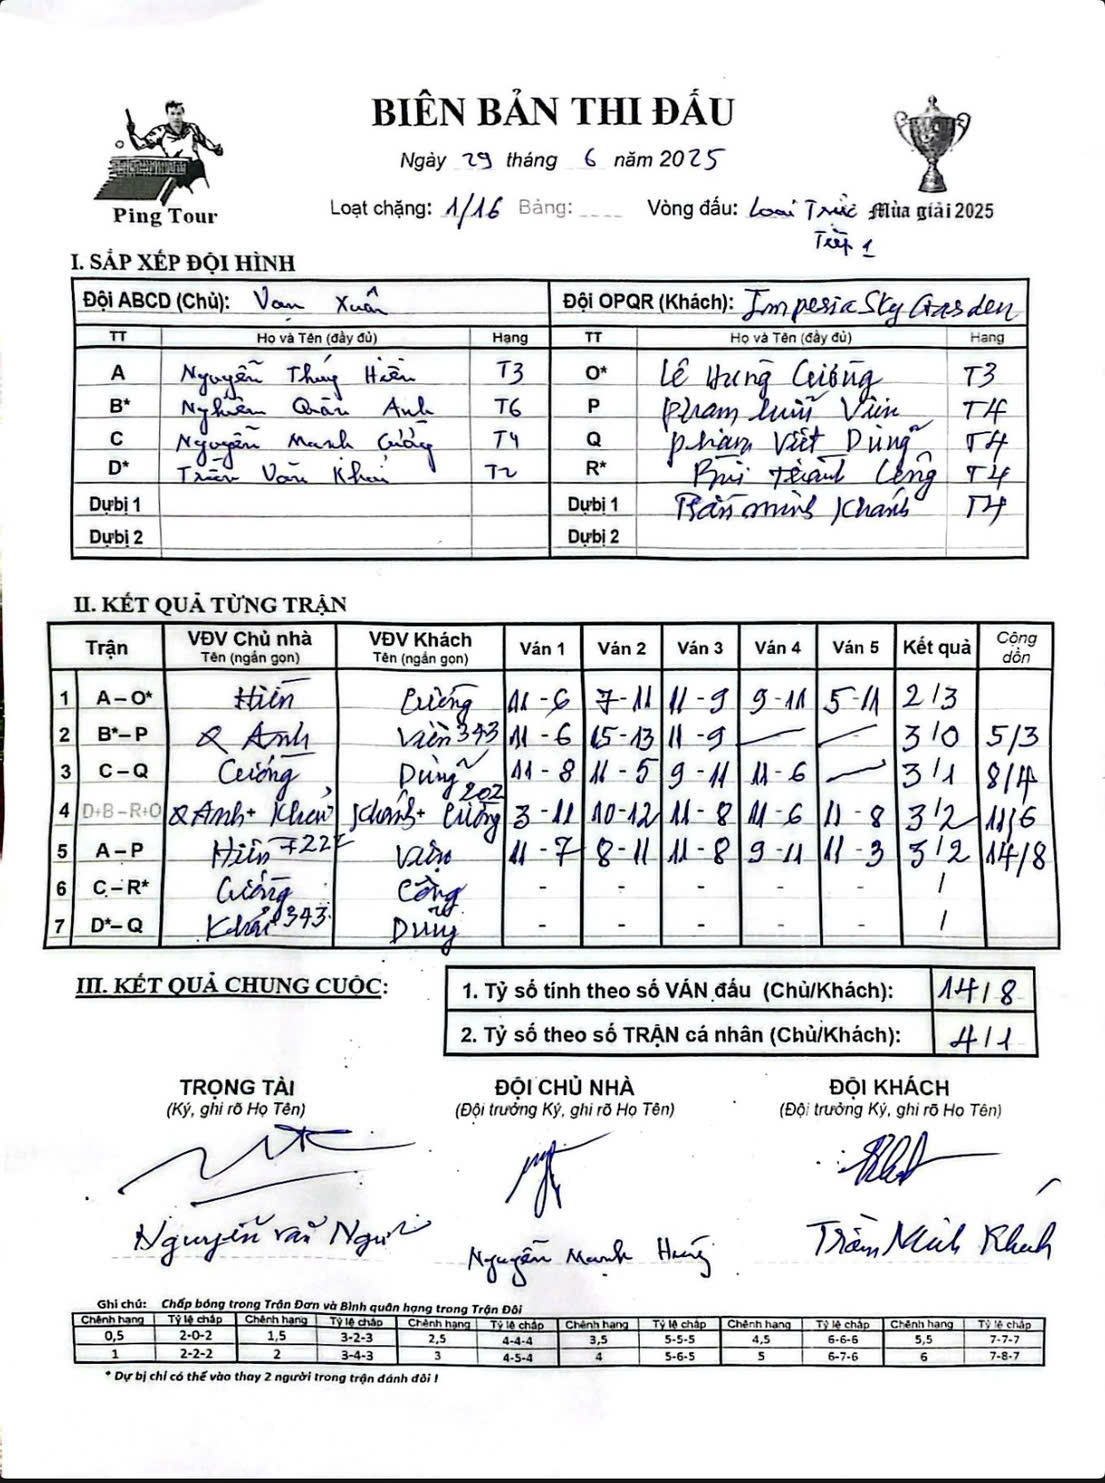 BIÊN BẢN THI ĐẤU
Ngày 29 tháng 6 năm 2025
Ping Tour
Loạt chặng: 1/16 Bảng: Vòng đấu: Loại Trực Tiếp 1
Mùa giải 2025
I. SẮP XẾP ĐỘI HÌNH
Đội ABCD (Chủ): Vạn Xuân Đội OPQR (Khách): Imperia Sky Garden
TT Họ và Tên (đầy đủ) Hạng TT Họ và Tên (đầy đủ) Hạng
A Nguyễn Thúy Hiền T3 O* Lê Hùng Cường T3
B* Nghiêm Quân Anh T6 P Phạm Viên T4
C Nguyễn Mạnh Cường T4 Q Phạm Việt Dũng T4
D* Trần Văn Khải T2 R* Bùi Thành Công T4
Dự bị 1 Dự bị 1 Trần Minh Khánh T4
Dự bị 2 Dự bị 2
II. KẾT QUẢ TỪNG TRẬN
Trận VĐV Chủ nhà Tên (ngắn gọn) VĐV Khách Tên (ngắn gọn) Ván 1 Ván 2 Ván 3 Ván 4 Ván 5 Kết quả Cộng dồn
1 A – O* Hiền Cường 11 - 6 7 - 11 11 - 9 9 - 11 5 - 11 2 / 3
2 B* – P Q Anh Viên 343 11 - 6 15 - 13 11 - 9 3 / 0 5/3
3 C – Q Cường Dũng 11 - 8 11 - 5 9 - 11 11 - 6 3 / 1 8/4
4 D+B – R+O Q Anh + Khải Khánh + Cường 202 3 - 11 10 - 12 11 - 8 11 - 6 11 - 8 3 / 2 11/6
5 A – P Hiền +222 Viên 11 - 7 8 - 11 11 - 8 9 - 11 11 - 3 3 / 2 14/8
6 C – R* Cường Công - - - - - /
7 D* – Q Khải 343 Dũng - - - - - /
III. KẾT QUẢ CHUNG CUỘC:
1. Tỷ số tính theo số VÁN đấu (Chủ/Khách): 14 / 8
2. Tỷ số theo số TRẬN cá nhân (Chủ/Khách): 4 / 1
TRỌNG TÀI ĐỘI CHỦ NHÀ ĐỘI KHÁCH
(Ký, ghi rõ Họ Tên) (Đội trưởng Ký, ghi rõ Họ Tên) (Đội trưởng Ký, ghi rõ Họ Tên)
Nguyễn Văn Nguyễn Mạnh Hùng Trần Minh Khánh
Ghi chú: Chấp bóng trong Trận Đơn và Bình quân hạng trong Trận Đôi
Chênh hạng Tỷ lệ chấp Chênh hạng Tỷ lệ chấp Chênh hạng Tỷ lệ chấp Chênh hạng Tỷ lệ chấp Chênh hạng Tỷ lệ chấp Chênh hạng Tỷ lệ chấp
0,5 2-0-2 1,5 3-2-3 2,5 4-4-4 3,5 5-5-5 4,5 6-6-6 5,5 7-7-7
1 2-2-2 2 3-4-3 3 4-5-4 4 5-6-5 5 6-7-6 6 7-8-7
* Dự bị chỉ có thể vào thay 2 người trong trận đánh đôi !